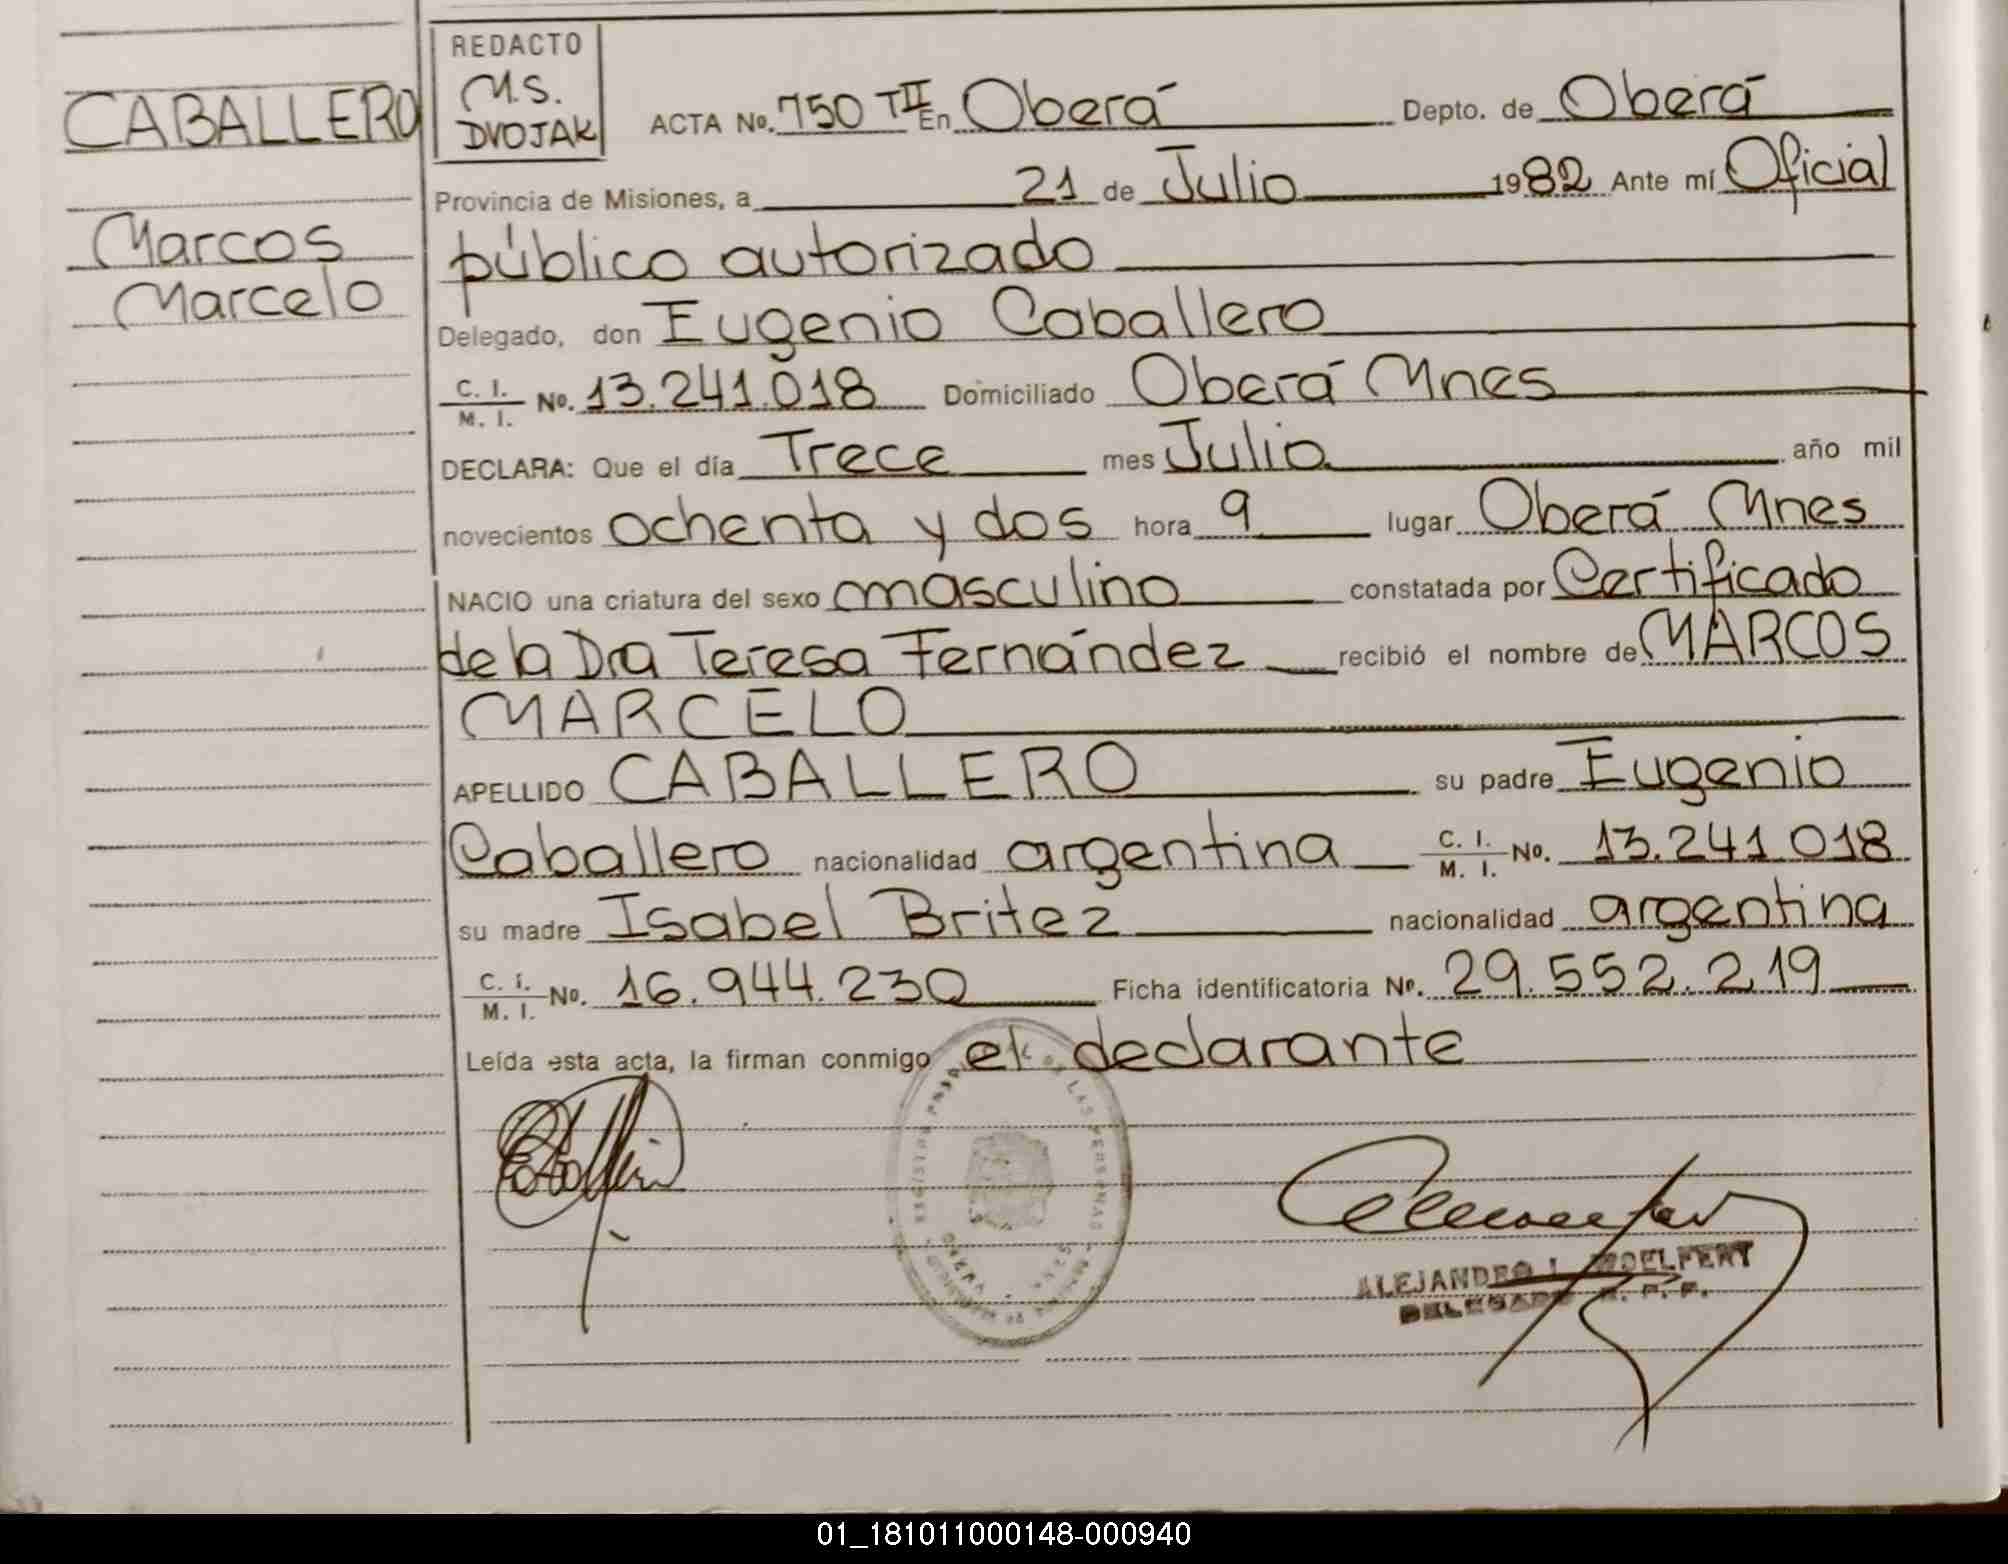 CABALLERO
Marcos
Marcelo
REDACTO
M.S.
DVOJAK
ACTA No. 750 TII En Oberá Depto. de Oberá
Provincia de Misiones, a 21 de Julio 1982 Ante mí Oficial
público autorizado
Delegado, don Eugenio Caballero
C. I. / M. I. No. 13.241.018 Domiciliado Oberá Mnes
DECLARA: Que el día Trece mes Julio año mil
novecientos ochenta y dos hora 9 lugar Oberá Mnes
NACIO una criatura del sexo masculino constatada por Certificado
de la Dra Teresa Fernández recibió el nombre de MARCOS
MARCELO
APELLIDO CABALLERO su padre Eugenio
Caballero nacionalidad argentina C. I. / M. I. No. 13.241.018
su madre Isabel Britez nacionalidad argentina
C. I. / M. I. No. 16.944.230 Ficha identificatoria No. 29.552.219
Leída esta acta, la firman conmigo el declarante
DE LAS PERSONAS
ALEJANDRO I. WOELFERT
DELEGADO R. P. P.
01_181011000148-000940